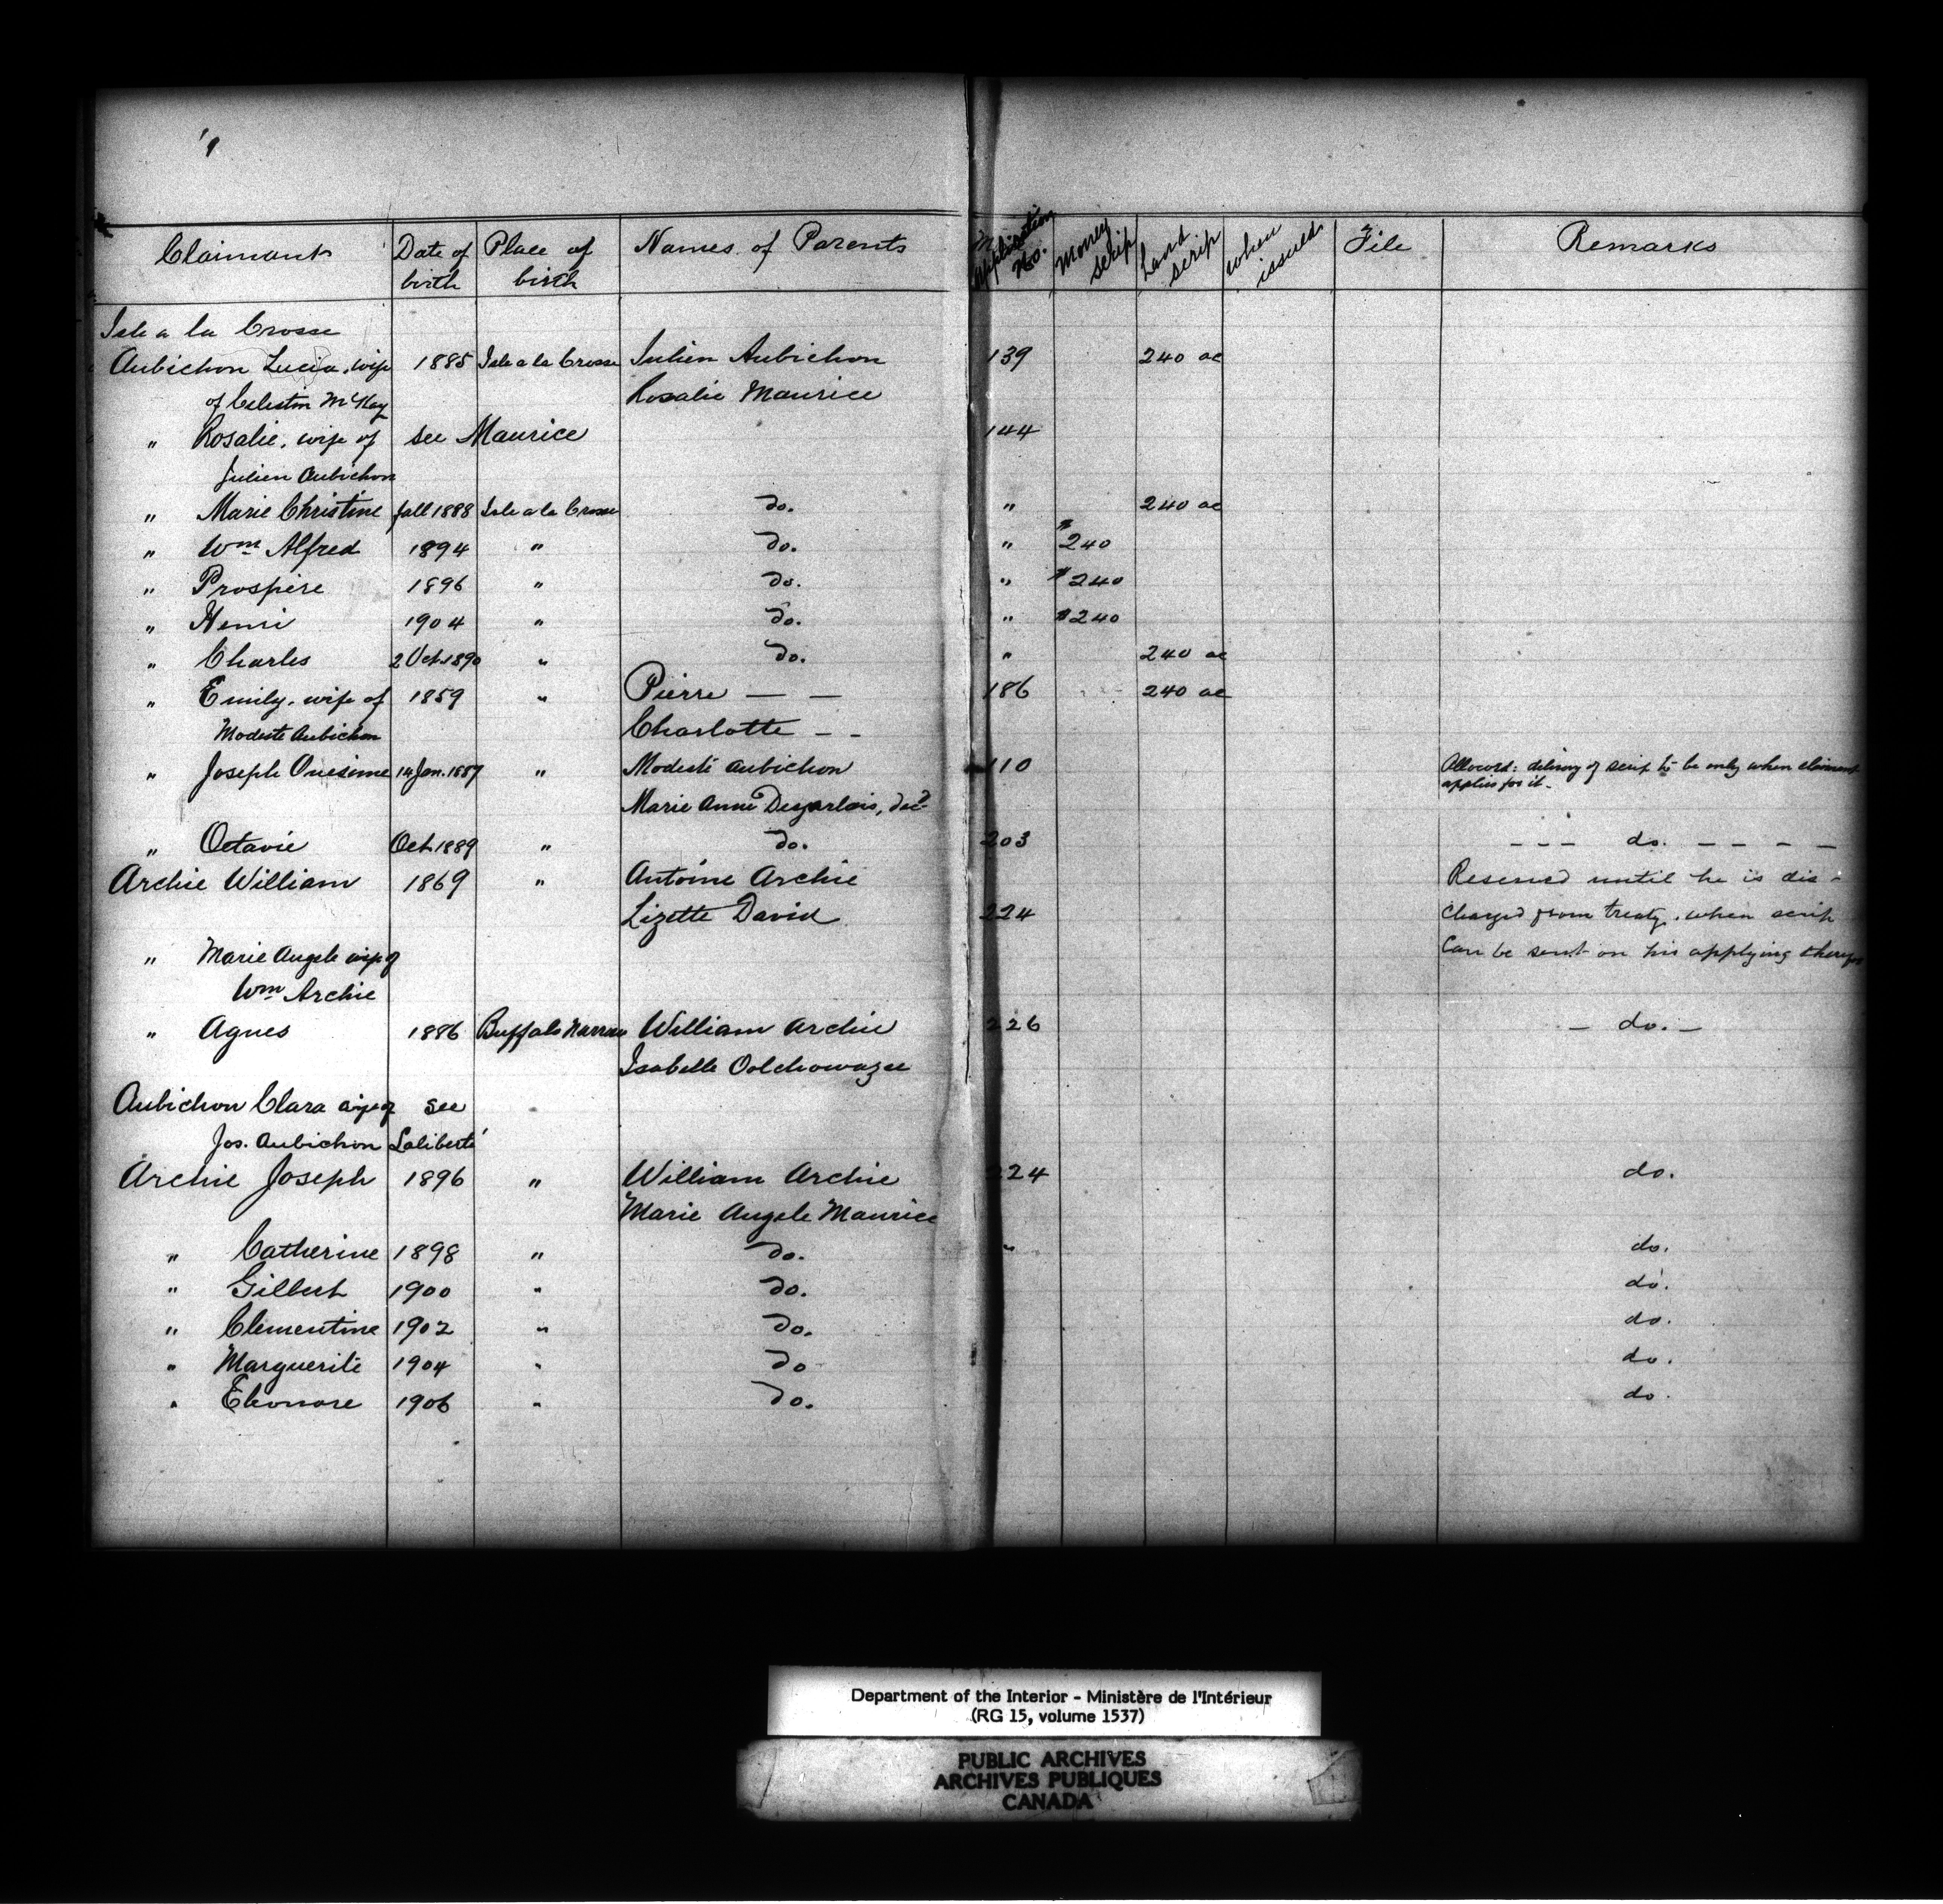 Claimant Date of birth Place of birth Names of Parents Application No. Money scrip Land scrip when issued File Remarks
Isle a la Crosse
Aubichon Lucia, wife 1885 Isle a la Crosse Julien Aubichon 139 240 ac
of Celestin McKay Rosalie Maurice
" Rosalie, wife of see Maurice 144
Julien Aubichon
" Marie Christine fall 1888 Isle a la Crosse do. " 240 ac
" Wm Alfred 1894 " do. " $240
" Prospère 1896 " do. " $240
" Henri 1904 " do. " $240
" Charles 2 Oct. 1890 " do. " 240 ac
" Emily, wife of 1859 " Pierre — — 186 240 ac
Modeste Aubichon Charlotte — —
" Joseph Onesime 14 Jan. 1887 " Modeste Aubichon 110 Allowed: delivery of scrip to be only when claimant
applies for it.
Marie Anne Desjarlais, dec'd
" Octavie Oct. 1889 " do. 203 – – – do. – – – –
Archie William 1869 " Antoine Archie Reserved until he is dis-
Lizette David 224 charged from treaty, when scrip
" Marie Angele wife of can be sent on his applying
Wm Archie
" Agnes 1886 Buffalo Narrows William Archie 226 – do. –
Isabelle
Aubichon Clara wife of see
Jos. Aubichon Laliberté
Archie Joseph 1896 " William Archie 224 do.
Marie Angele Maurice
" Catherine 1898 " do. " do.
" Gilbert 1900 " do. do.
" Clementine 1902 " do. do.
" Marguerite 1904 " do do.
" Eleonore 1906 " do. do.
Department of the Interior - Ministère de l'Intérieur
(RG 15, volume 1537)
PUBLIC ARCHIVES
ARCHIVES PUBLIQUES
CANADA